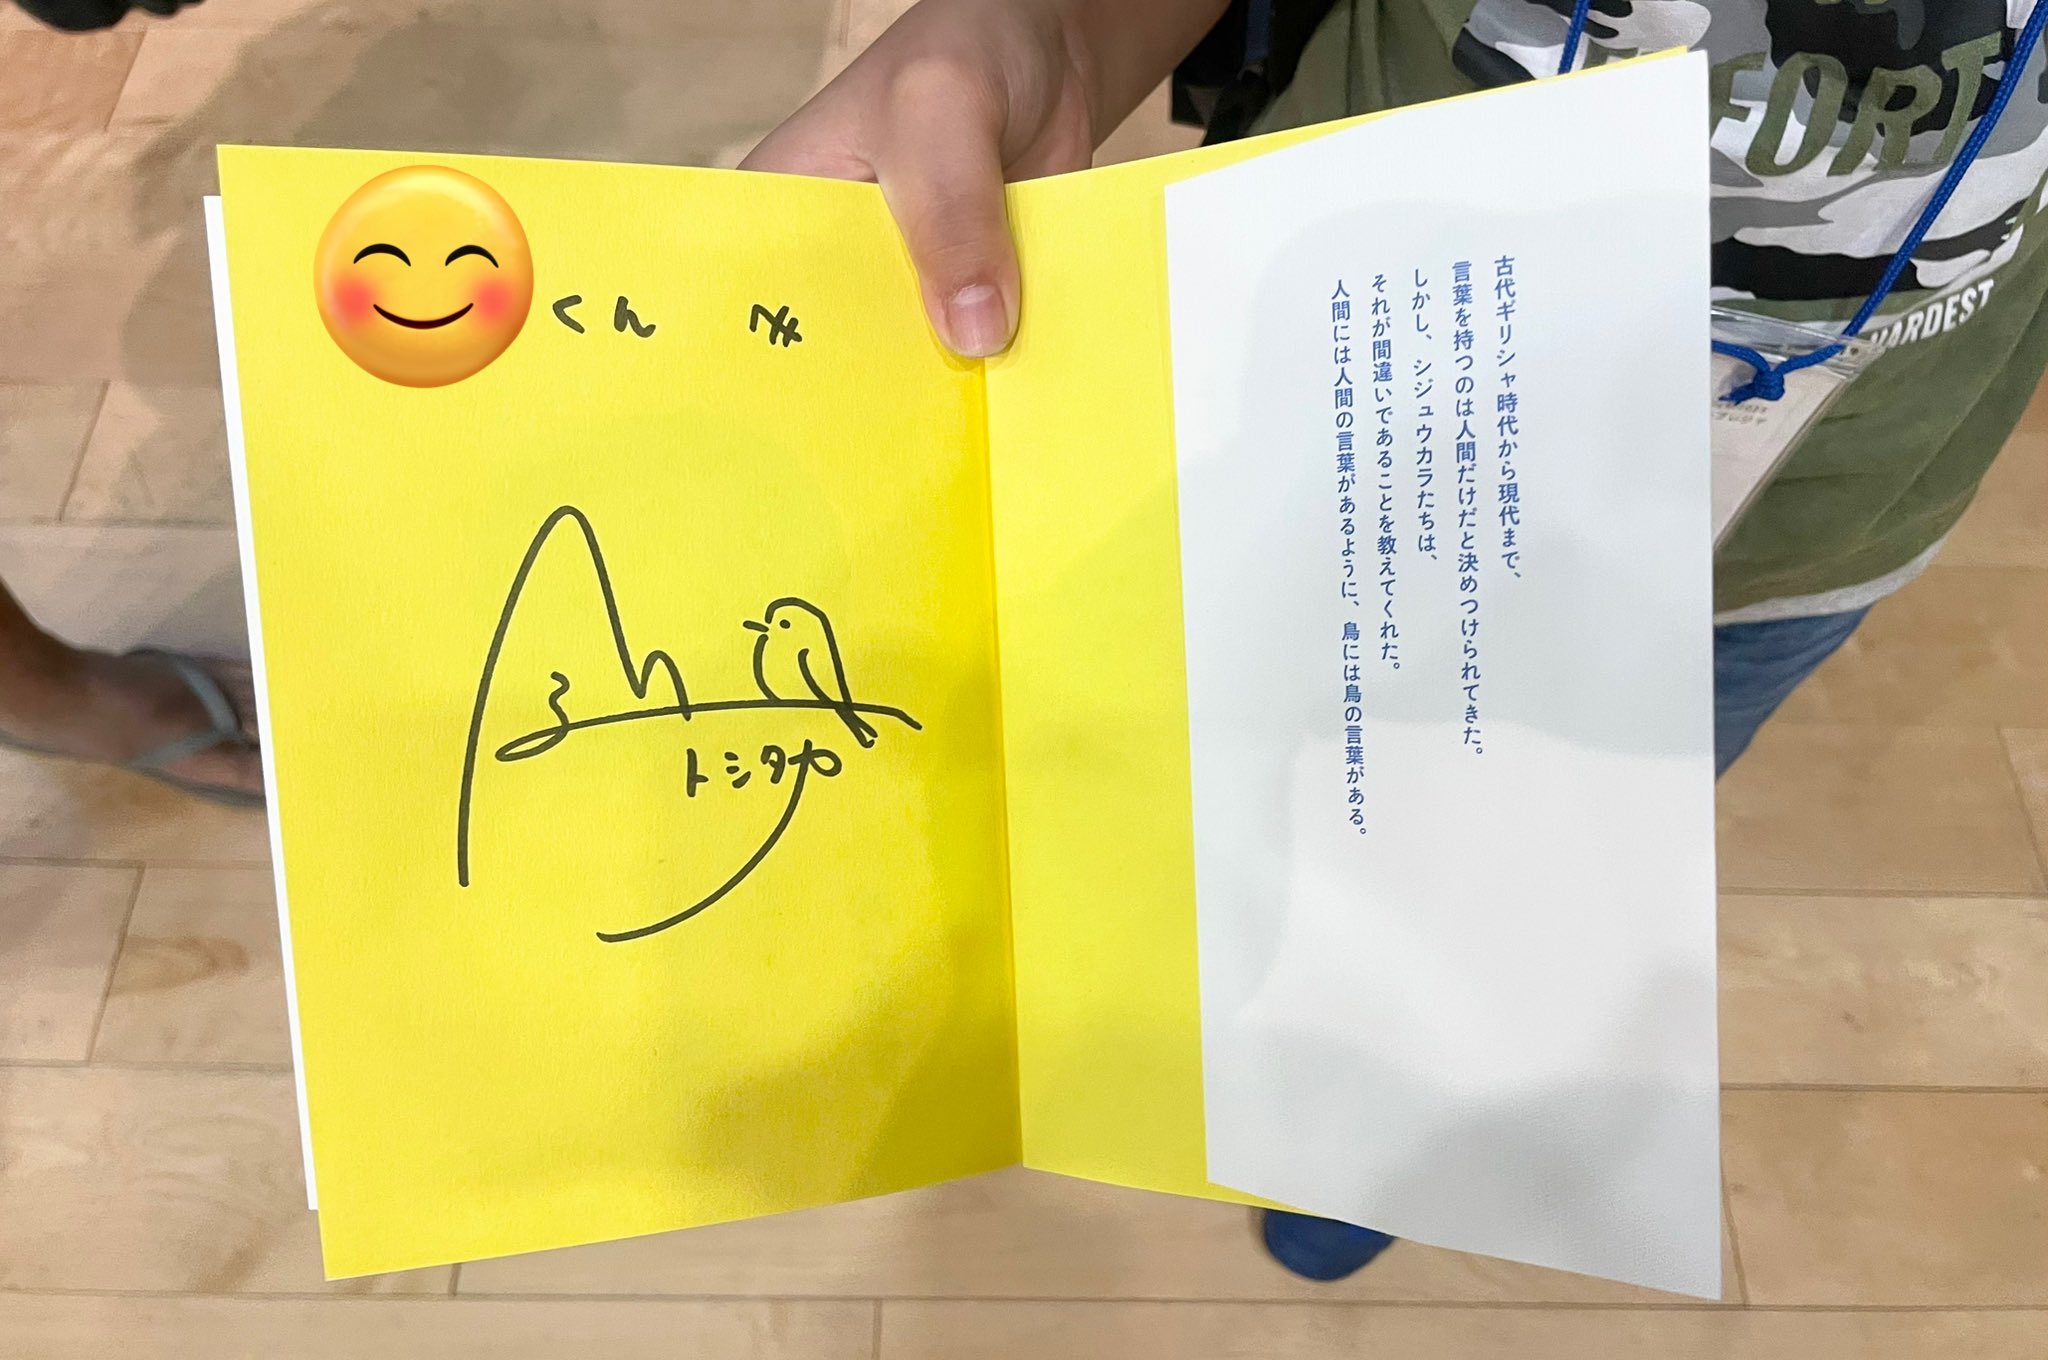 くん へ
トシタカ
古代ギリシャ時代から現代まで、
言葉を持つのは人間だけだと決めつけられてきた。
しかし、シジュウカラたちは、
それが間違いであることを教えてくれた。
人間には人間の言葉があるように、鳥には鳥の言葉がある。
FORT
HARDEST